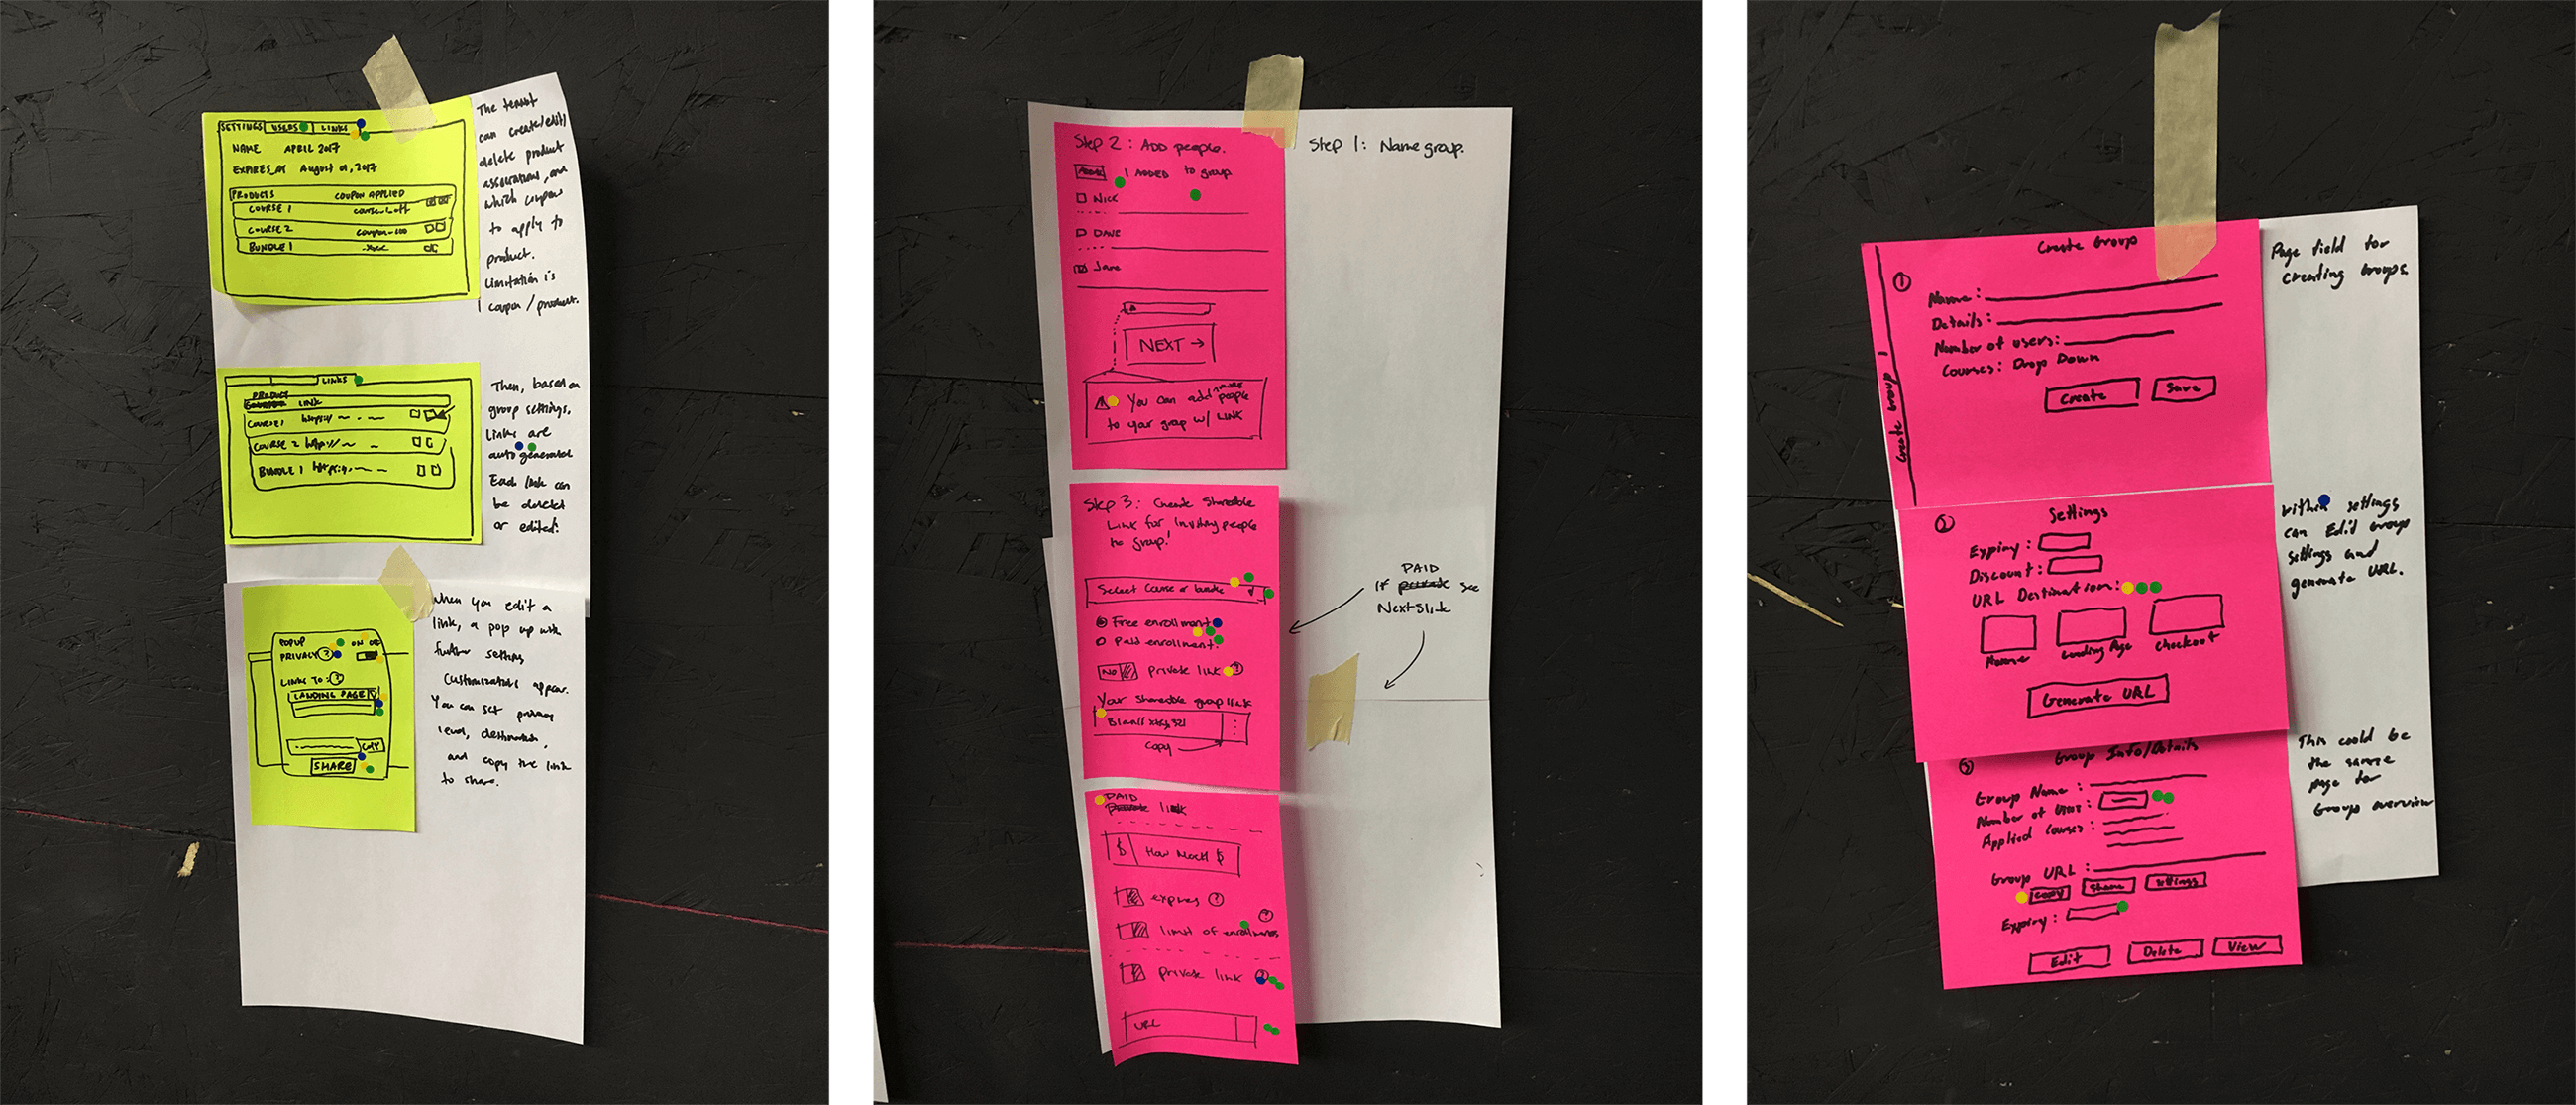 SETTINGS USERS LINKS
NAME APRIL 2017
EXPIRES AT August 01, 2017
PRODUCTS COUPON APPLIED
COURSE 1
COURSE 2 coupon-100
BUNDLE 1
The tenant
can create/edit/
delete product
associations, and
which coupons
to apply to
product.
Limitation is
1 coupon / product.
LINKS
PRODUCT
LINK
COURSE 1 http://
COURSE 2 http://
BUNDLE 1
Then, based on
group settings,
links are
auto generated
Each link can
be deleted
or edited.
POPUP ON
PRIVACY ?
LINKS TO: ?
LANDING PAGE
COPY
SHARE
When you edit a
link, a pop up with
further setting
customizations appear.
You can set privacy
level, destination,
and copy the link
to share.
Step 1: Name group.
Step 2: ADD people.
1 ADDED to group
NICK
DAVE
Jane
NEXT →
You can add more people
to your group w/ LINK
Step 3: Create shareable
Link for inviting people
to group!
Select Course or bundle
Free enrollment
Paid enrollment
NO private link ?
Your shareable group link
Copy
PAID
If private see
Next Slide
PAID
Private link
$ How Much $
expires ?
?
limit of enrollments
private link ?
URL
Create Group
1
Create Group 1
Name:
Details:
Number of users:
Courses: Drop Down
Create Save
Page field for
creating Groups
2 Settings
Expiry:
Discount:
URL Destination:
Home Landing Page Checkout
Generate URL
within settings
can Edit Group
settings and
generate URL.
3 Group Info/Details
Group Name:
Number of Users:
Applied Courses:
Group URL:
Copy Share Settings
Expiry:
Edit Delete View
This could be
the same
page for
Group overview